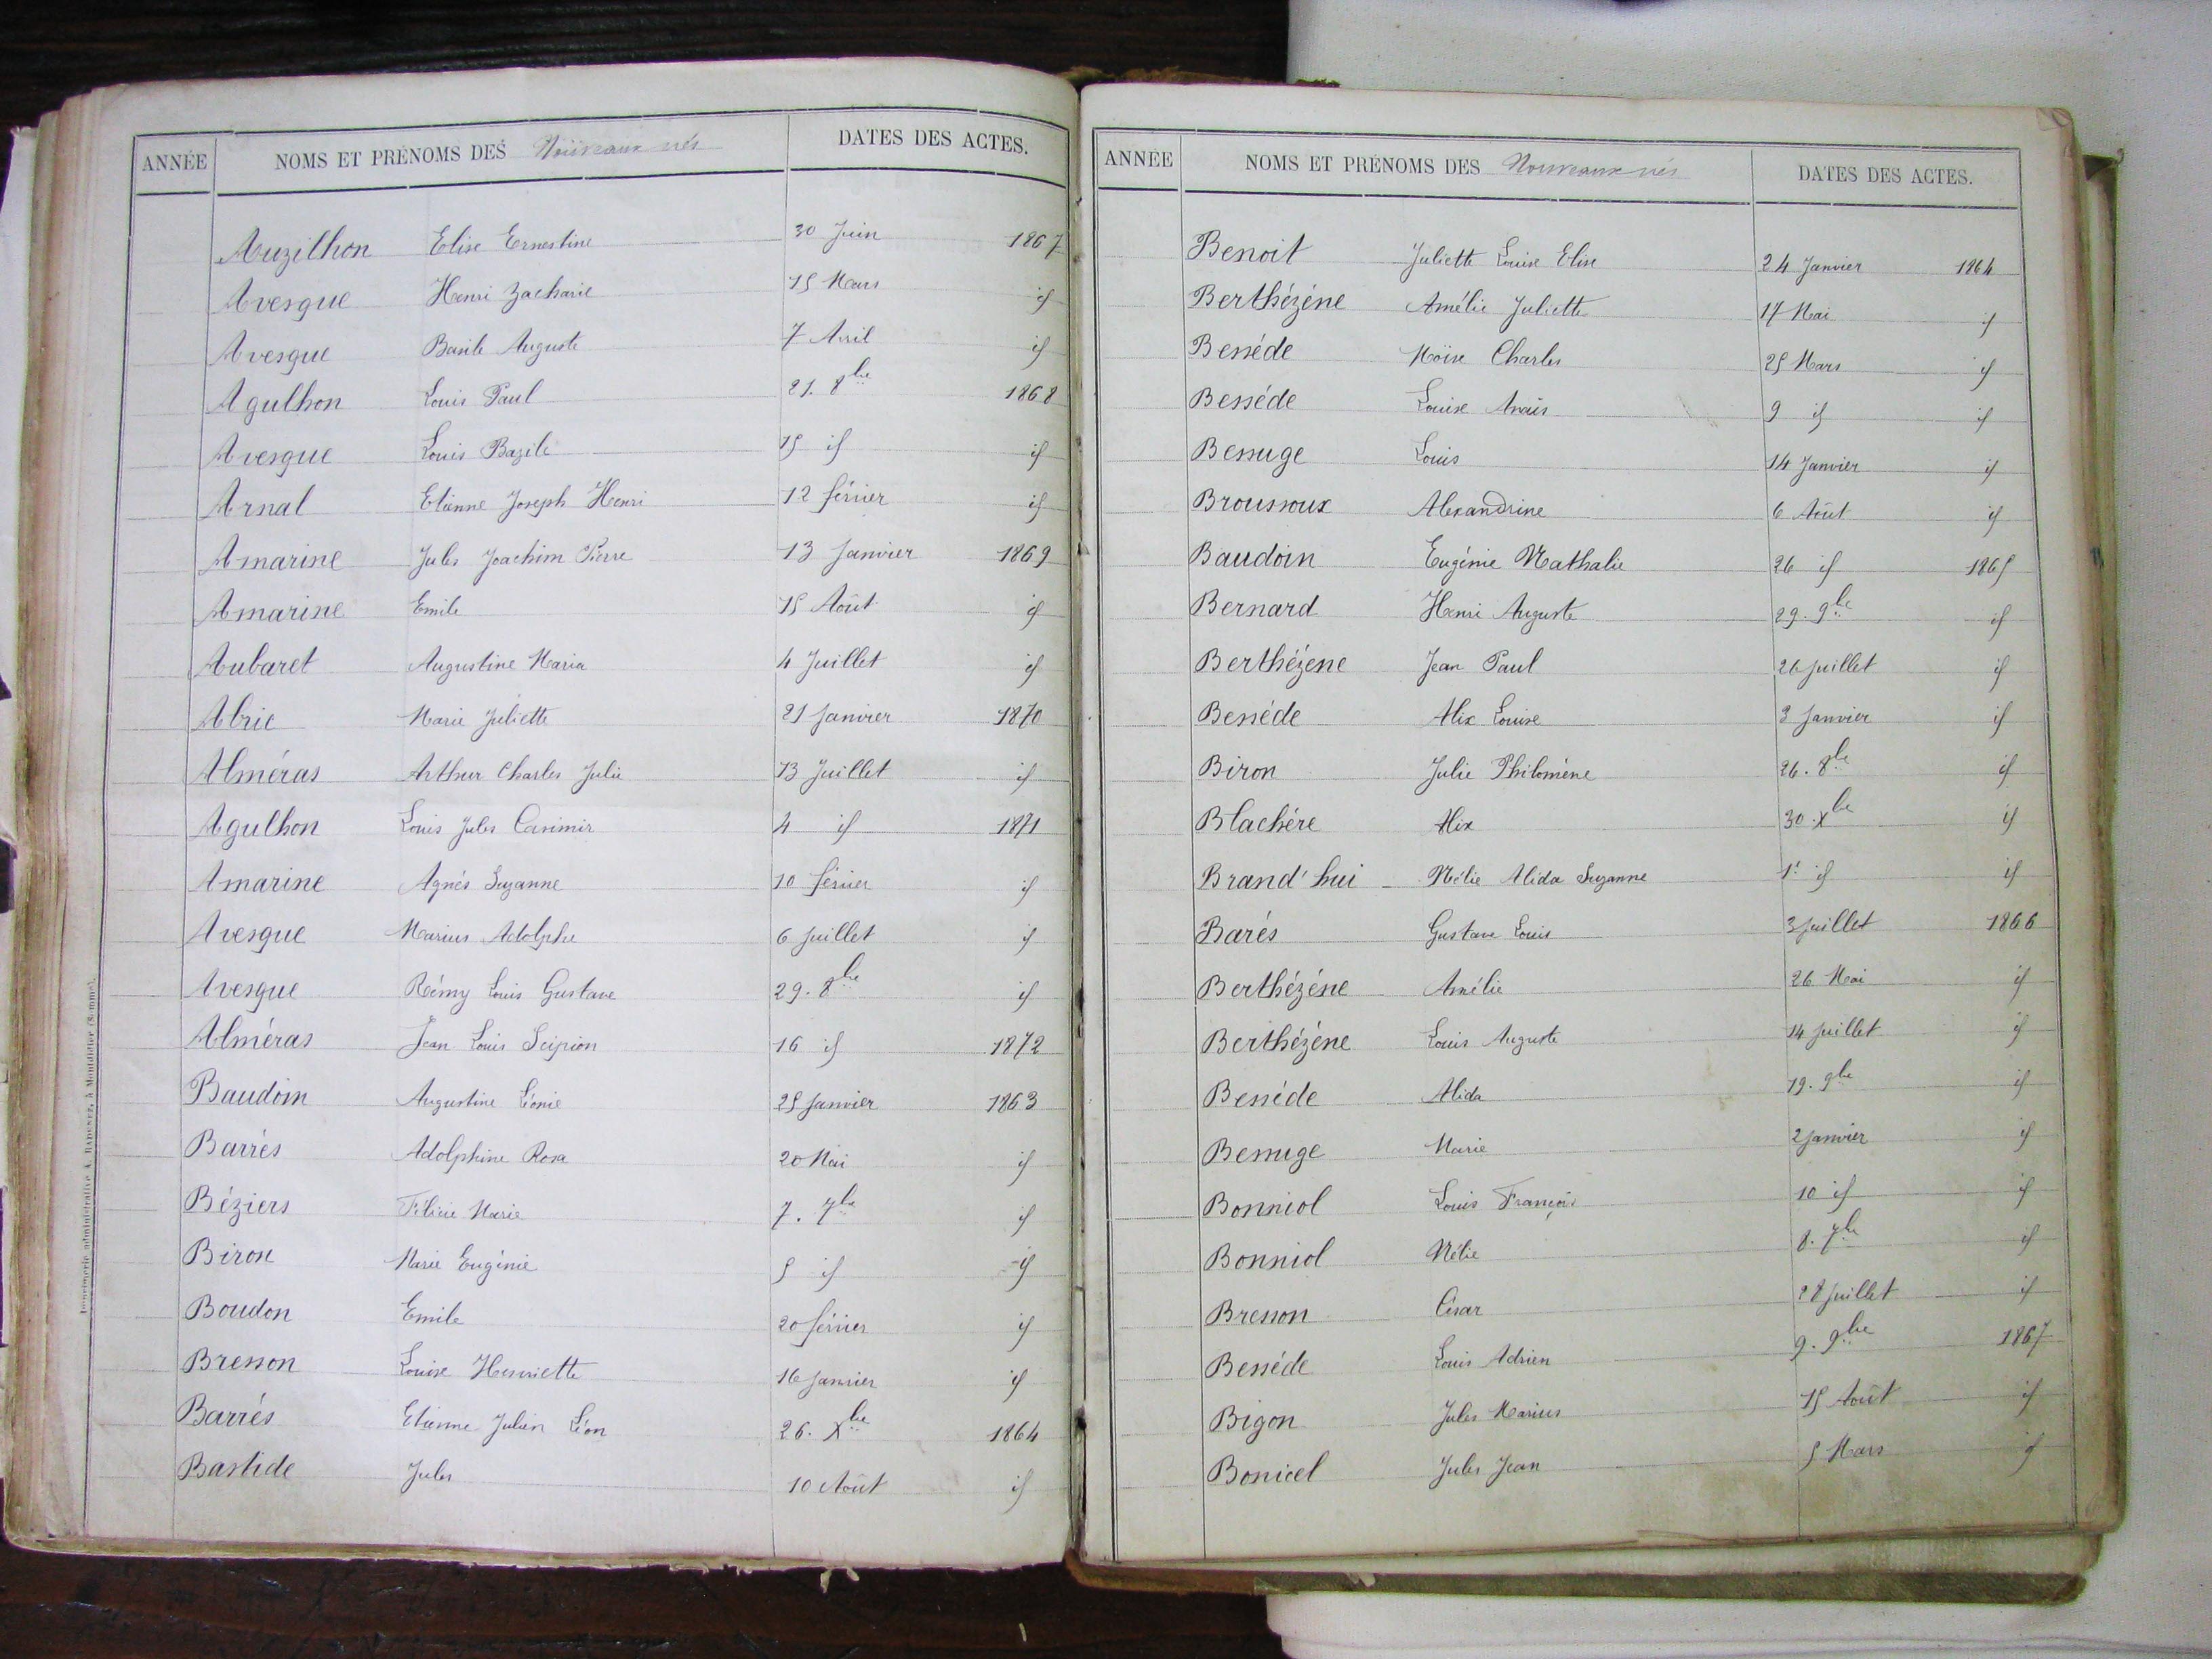 ANNÉE NOMS ET PRÉNOMS DES Nouveaux nés DATES DES ACTES.
Auzilhon Elise Ernestine 30 Juin 1867
Avesque Henri Zacharie 15 Mars id
Avesque Basile Auguste 7 Avril id
Agulhon Louis Paul 21. 8bre 1868
Avesque Louis Bazile 15 id id
Arnal Etienne Joseph Henri 12 février id
Amarine Jules Joachim Pierre 13 Janvier 1869
Amarine Emile 15 Août id
Aubaret Augustine Maria 4 Juillet id
Abric Marie Juliette 21 Janvier 1870
Alméras Arthur Charles Julie 13 Juillet id
Agulhon Louis Jules Casimir 4 id 1871
Amarine Agnès Suzanne 10 février id
Avesque Marius Adolphe 6 Juillet id
Avesque Rémy Louis Gustave 29. 8bre id
Alméras Jean Louis Scipion 16 id 1872
Baudoin Augustine Léonie 25 Janvier 1863
Barrés Adolphine Rosa 20 Mai id
Béziers Félicie Marie 7. 7bre id
Biron Marie Eugénie 5 id id
Boudon Emile 20 février id
Bresson Louise Henriette 16 Janvier id
Barrés Etienne Julien Léon 26. Xbre 1864
Bastide Jules 10 Août id
Imprimerie administrative A. RADENEZ, à Montdidier (Somme).
ANNÉE NOMS ET PRÉNOMS DES Nouveaux nés DATES DES ACTES.
Benoit Juliette Louise Elise 24 Janvier 1864
Berthézéne Amélie Juliette 17 Mai id
Besséde Moïse Charles 25 Mars id
Besséde Louise Anaïs 9 id id
Bessuge Louis 14 Janvier id
Broussoux Alexandrine 6 Août id
Baudoin Eugénie Nathalie 26 id 1865
Bernard Henri Auguste 29. 9bre id
Berthézene Jean Paul 26 Juillet id
Besséde Alix Louise 3 Janvier id
Biron Julie Philomène 26. 8bre id
Blachére Alix 30. Xbre id
Brand'hui Mélie Alida Suzanne 1r id id
Barés Gustave Louis 3 Juillet 1866
Berthézéne Amélie 26 Mai id
Berthézéne Louis Auguste 14 Juillet id
Besséde Alida 19. 9bre id
Bessuge Marie 2 Janvier id
Bonniol Louis François 10 id id
Bonniol Mélie 8. 7bre id
Bresson César 28 Juillet id
Besséde Louis Adrien 9. 9bre 1867
Bigon Jules Marius 15 Août id
Bonicel Jules Jean 5 Mars id